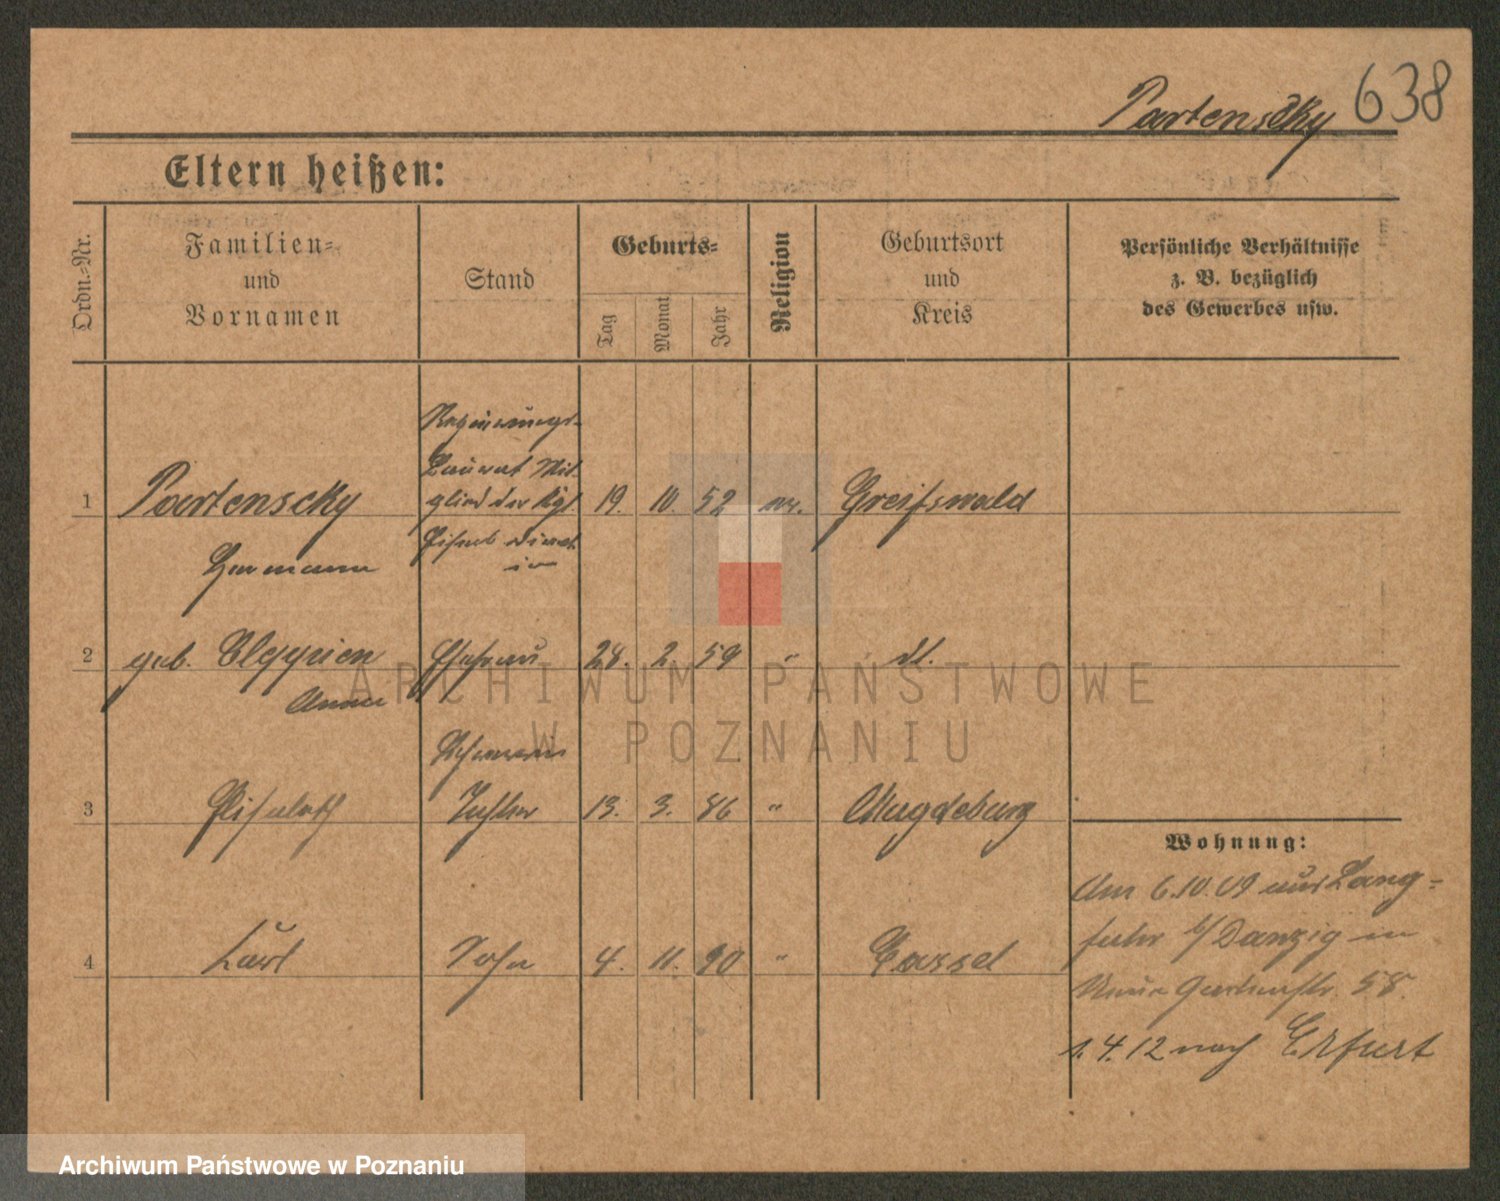 Partenscky 638
Eltern heißen:
Ordn.-Nr.
Familien-
und
Vornamen
Stand
Geburts-
Tag
Monat
Jahr
Religion
Geburtsort
und
Kreis
Persönliche Verhältnisse
z. B. bezüglich
des Gewerbes usw.
Regierungs-
Baurat Mit-
1 Partenscky glied der Kgl 19. 10. 52 Greifswald
Hermann
2 geb. Ehefrau 28. 2. 59 " dt.
Anna
3 Elisabeth Tochter 13. 3. 86 " Magdeburg
4 Kurt Sohn 4. 11. 90 " Cassel
Wohnung:
Am 6.10.09 aus Lang-
fuhr b/ Danzig in
Neue Gartenstr. 58.
1.4.12 nach Erfurt
ARCHIWUM PAŃSTWOWE
W POZNANIU
Archiwum Państwowe w Poznaniu